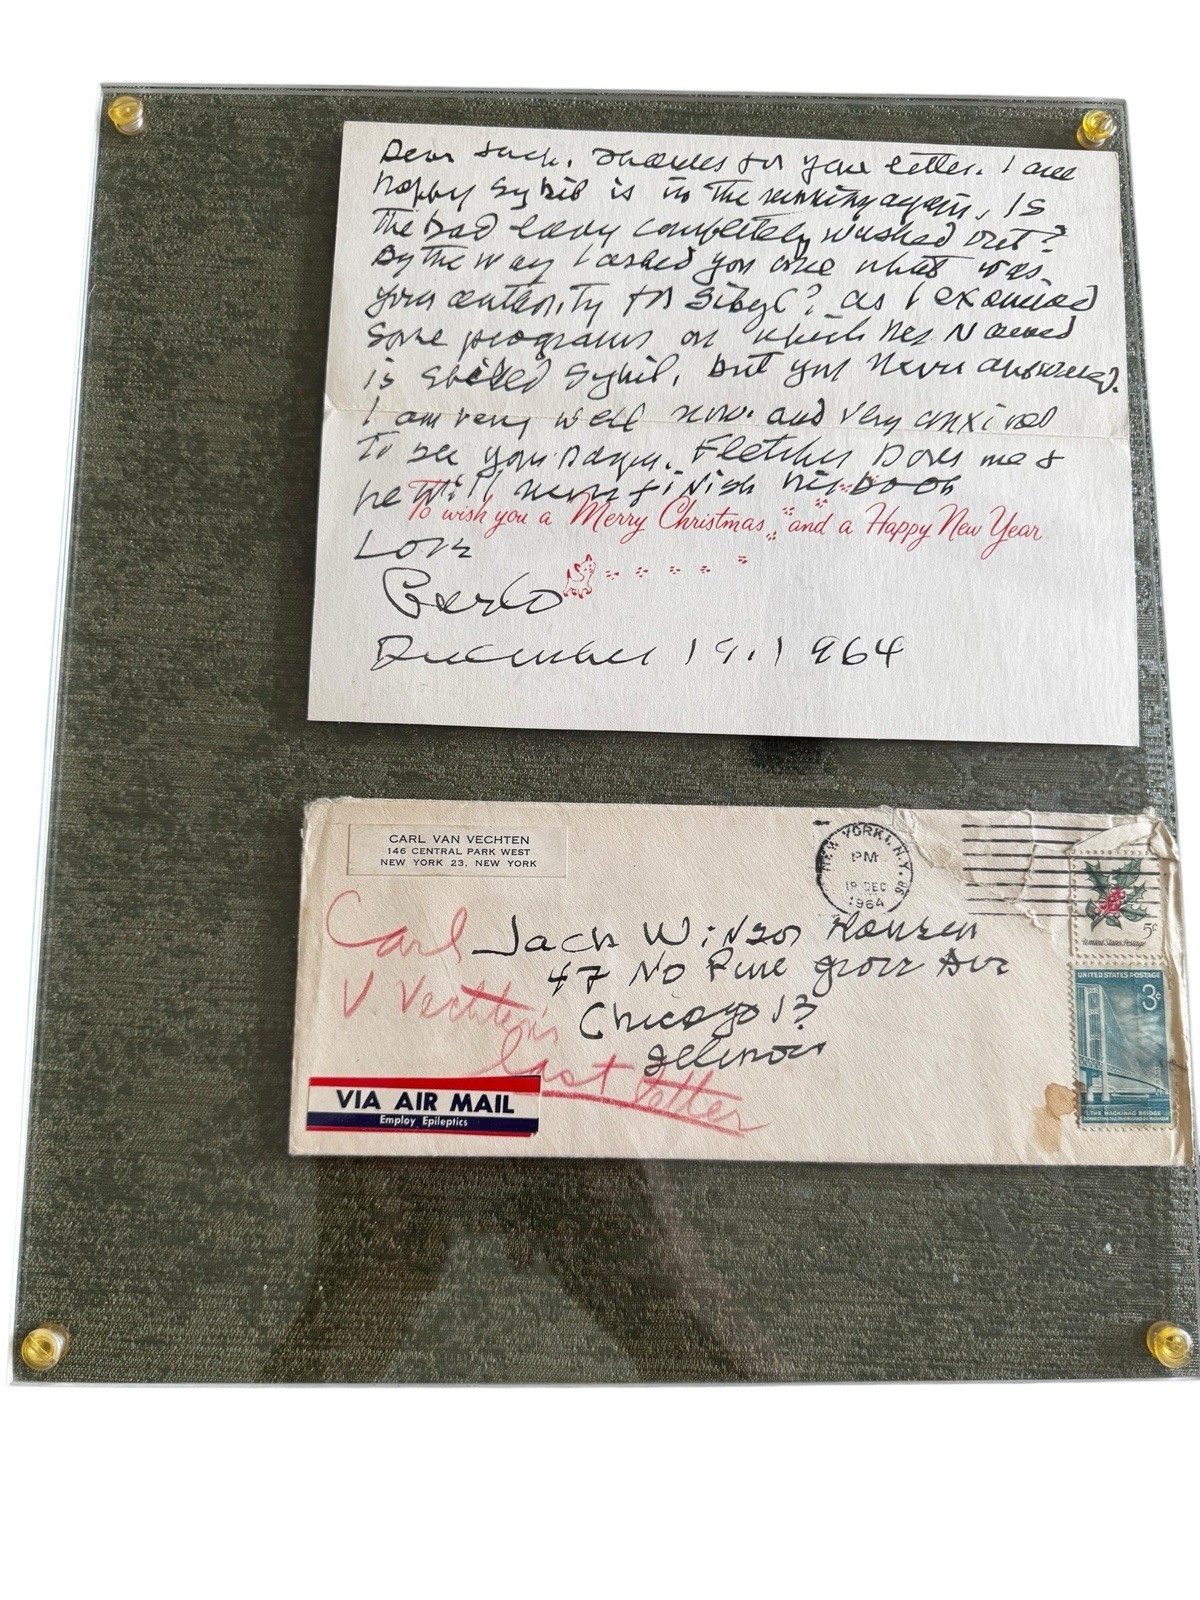 Dear Jack, Thanks for your letter. I am
happy Sybil is in the running again. Is
the bad lady completely washed out?
By the way I asked you once what was
your authority for Sibyl? as I examined
some programs on which her Name
is spelled Sybil, but you never answered.
I am very well now. and very anxious
to see you again. Fletcher loves me &
he will never finish his book
To wish you a Merry Christmas and a Happy New Year
Love
Carlo
December 19, 1964
CARL VAN VECHTEN
146 CENTRAL PARK WEST
NEW YORK 23, NEW YORK
NEW YORK 1, N.Y.
PM
19 DEC
1964
5c
United States Postage
Jack Winzor Hansen
47 No Pine Grove Ave
Chicago 13
Illinois
Carl
V Vechten's
last letter
UNITED STATES POSTAGE
3c
THE MACKINAC BRIDGE
VIA AIR MAIL
Employ Epileptics